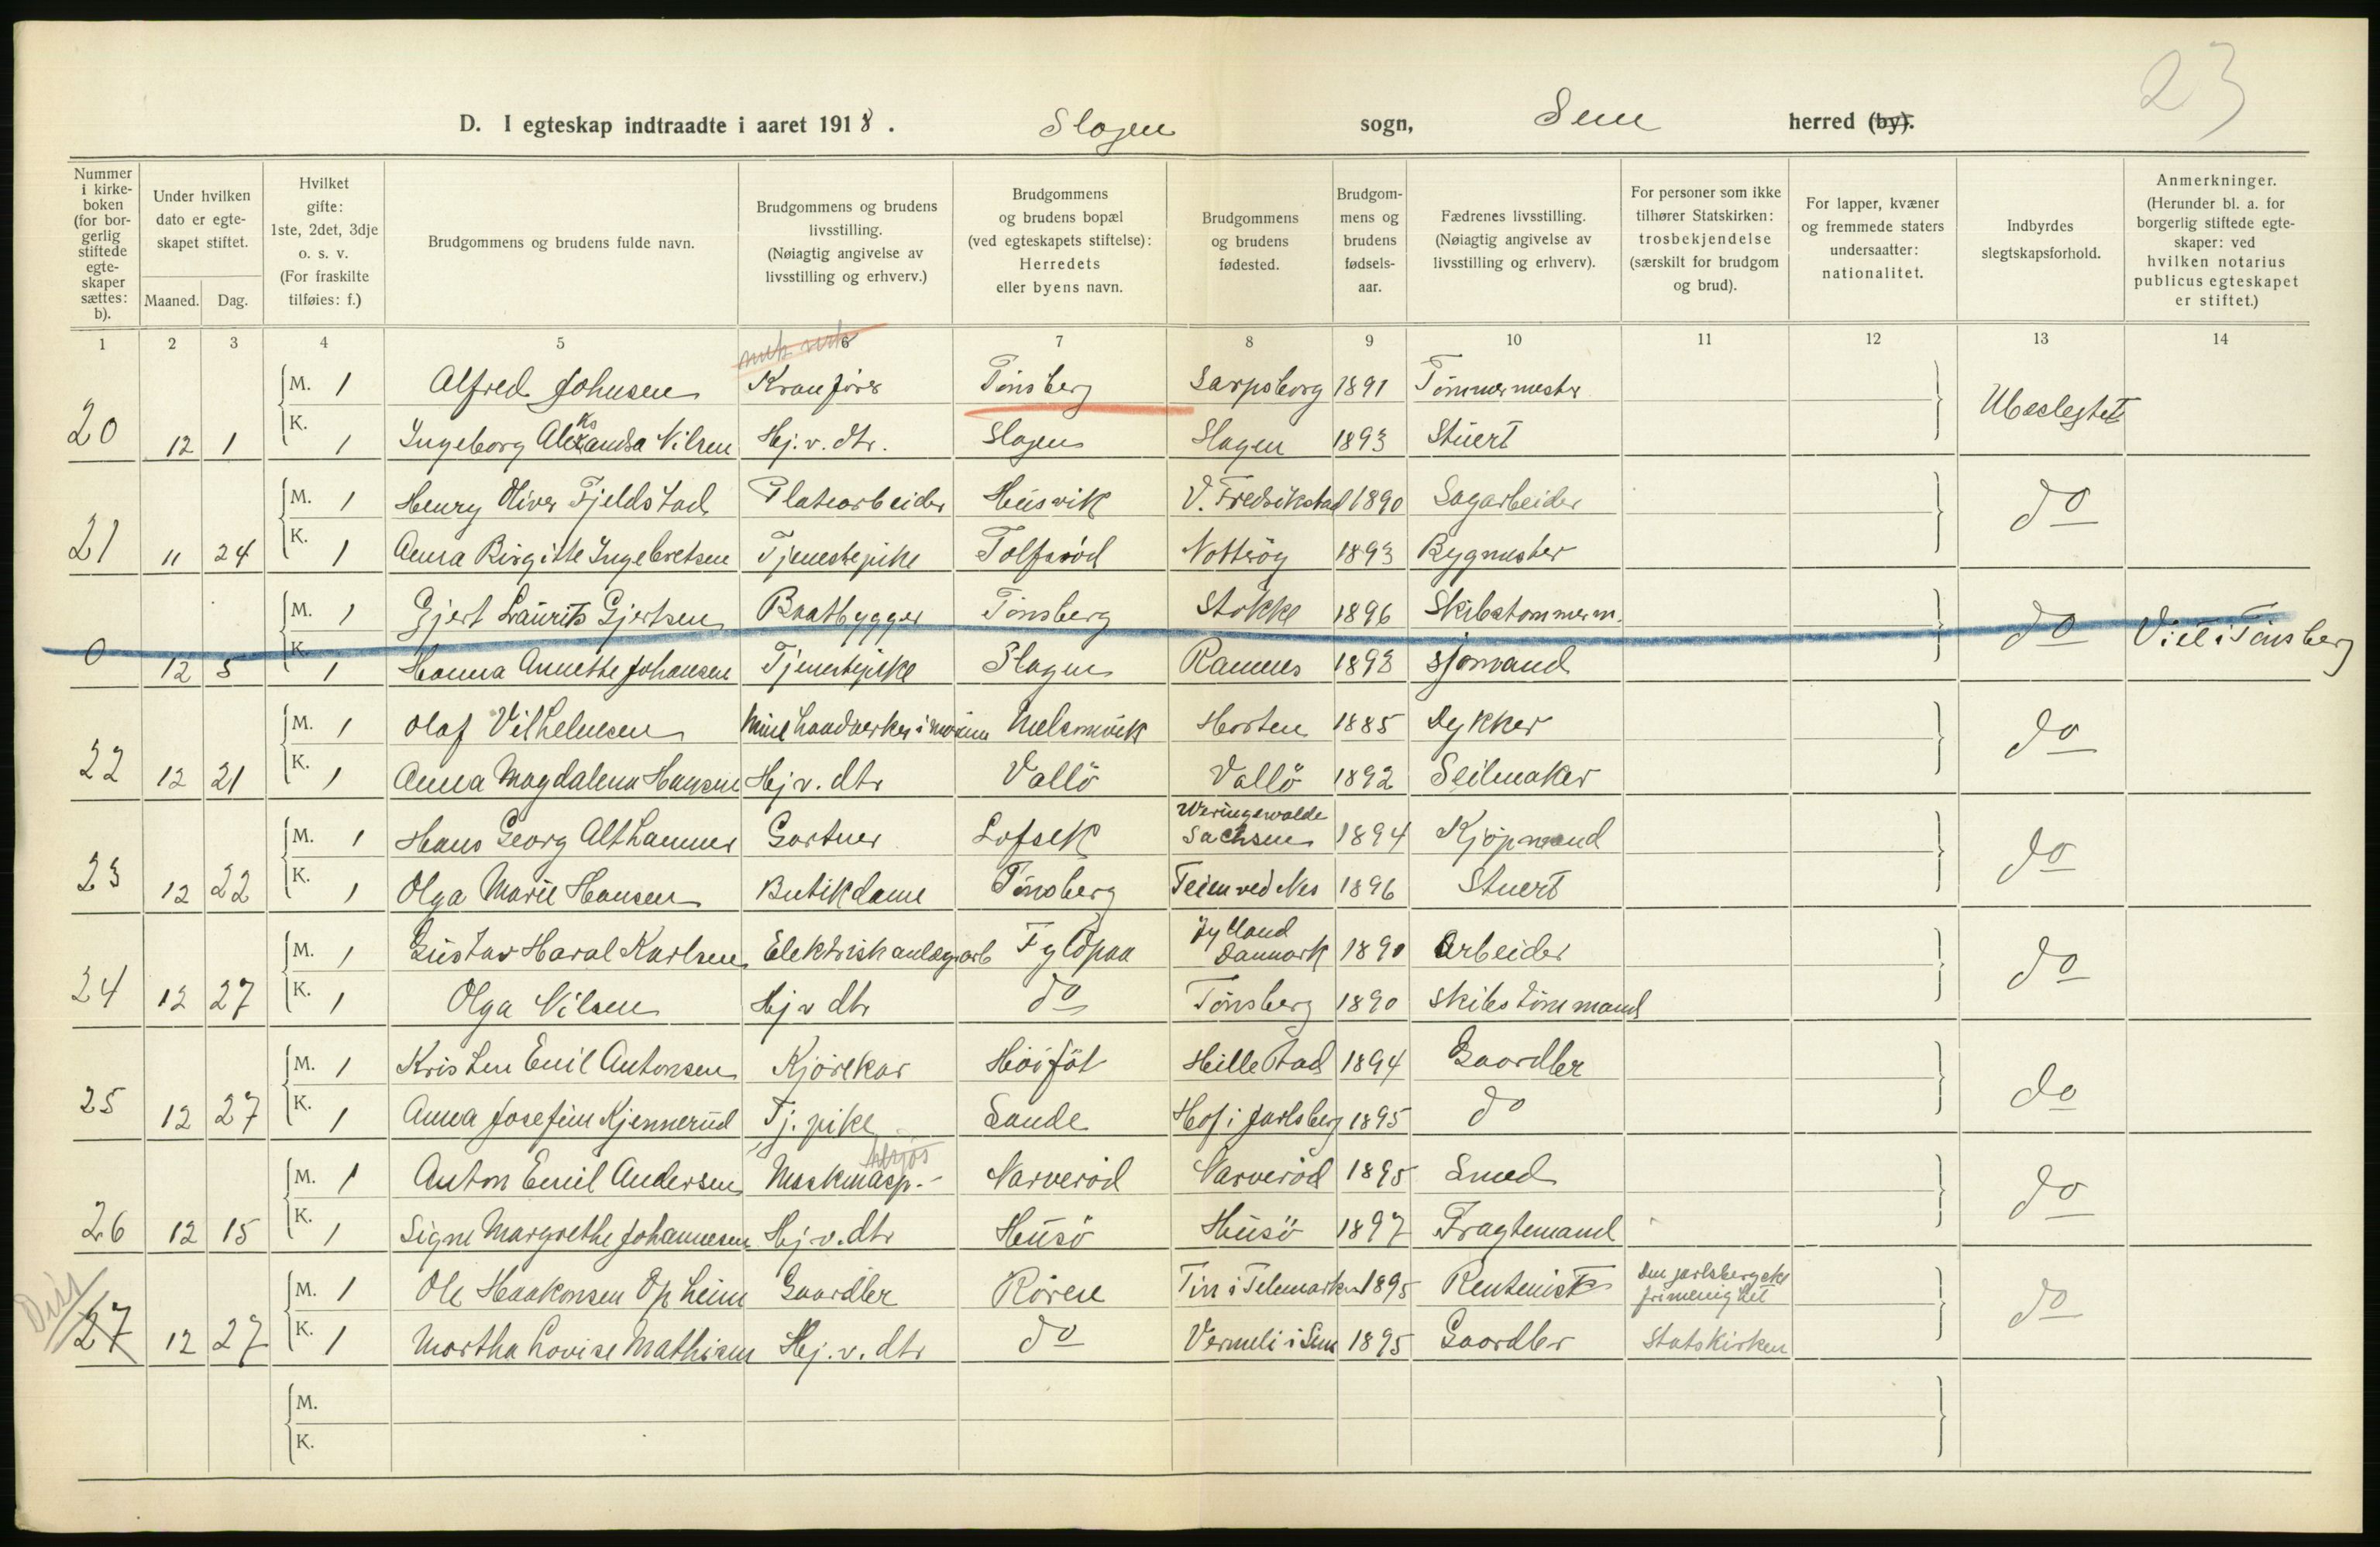 23
D. I egteskap indtraadte i aaret 1918. Slagen sogn, Sem herred (by).
Nummer i kirkeboken (for borgerlig stiftede egteskaper sættes: b).
Under hvilken dato er egteskapet stiftet.
Maaned. Dag.
Hvilket gifte: 1ste, 2det, 3dje o. s. v. (For fraskilte tilføies: f.)
Brudgommens og brudens fulde navn.
Brudgommens og brudens livsstilling. (Nøiagtig angivelse av livsstilling og erhverv.)
Brudgommens og brudens bopæl (ved egteskapets stiftelse): Herredets eller byens navn.
Brudgommens og brudens fødested.
Brudgommens og brudens fødselsaar.
Fædrenes livsstilling. (Nøiagtig angivelse av livsstilling og erhverv).
For personer som ikke tilhører Statskirken: trosbekjendelse (særskilt for brudgom og brud).
For lapper, kvæner og fremmede staters undersaatter: nationalitet.
Indbyrdes slegtskapsforhold.
Anmerkninger. (Herunder bl. a. for borgerlig stiftede egteskaper: ved hvilken notarius publicus egteskapet er stiftet.)
1 2 3 4 5 6 7 8 9 10 11 12 13 14
M. 1 Alfred Johnsen Kranfører Tönsberg Sarpsborg 1891 Tømmermester Ubeslegtet
20 12 1 K. 1 Ingeborg Aleksandra Nilsen Hj. v. dtr. Slagen Slagen 1893 Stuert
M. 1 Henry Oliver Fjeldstad Platearbeider Husvik V. Fredrikstad 1890 Sagarbeider do
21 11 24 K. 1 Anna Birgitte Ingebretsen Tjenestepike Tolfsrød Nøtterøy 1893 Bygmester
M. 1 Gjert Laurits Gjertsen Baatbygger Tönsberg Stokke 1896 Skibstømmerm. do Viet i Tönsberg
0 12 5 K. 1 Hanna Annette Johansen Tjenestepike Slagen Ramnes 1893 Sjømand
M. 1 Olaf Vilhelmsen Minehaandverker i marinen Melsomvik Horten 1885 Dykker do
22 12 21 K. 1 Anna Magdalena Hansen Hj v. dtr Vallö Vallö 1892 Seilmaker
M. 1 Hans Georg Althammer Gartner Lofsek Weringswalde Sachsen 1894 Kjøpmand do
23 12 22 K. 1 Olga Marie Hansen Butikdame Tönsberg Teien ved Nes 1896 Stuert
M. 1 Gustav Haral Karlsen Elektrisk anlægsarb Fylpaa Jylland Danmark 1890 Arbeider do
24 12 27 K. 1 Olga Nilsen Hj v dtr do Tönsberg 1890 Skibstömmand
M. 1 Kristen Emil Antonsen Kjørekar Höijöt Hillestad 1894 Gaardbr do
25 12 27 K. 1 Anna Josefine Kjennerud Tj. pike Sande Hof i Jarlsberg 1895 do
M. 1 Anton Emil Andersen Maskinasp. Narveröd Narveröd 1895 Smed do
26 12 15 K. 1 Signe Margrethe Johannesen Hj. v. dtr Husö Husö 1897 Fragtemand
Diss
M. 1 Ole Haakonsen Opheim Gaardbr Røren Tin i Telemarken 1895 Rentenist Den jarlsbergske frimenighet do
27 12 27 K. 1 Martha Lovise Mathisen Hj. v. dtr do Vermeli i Sem 1895 Gaardbr Statskirken
M.
K.